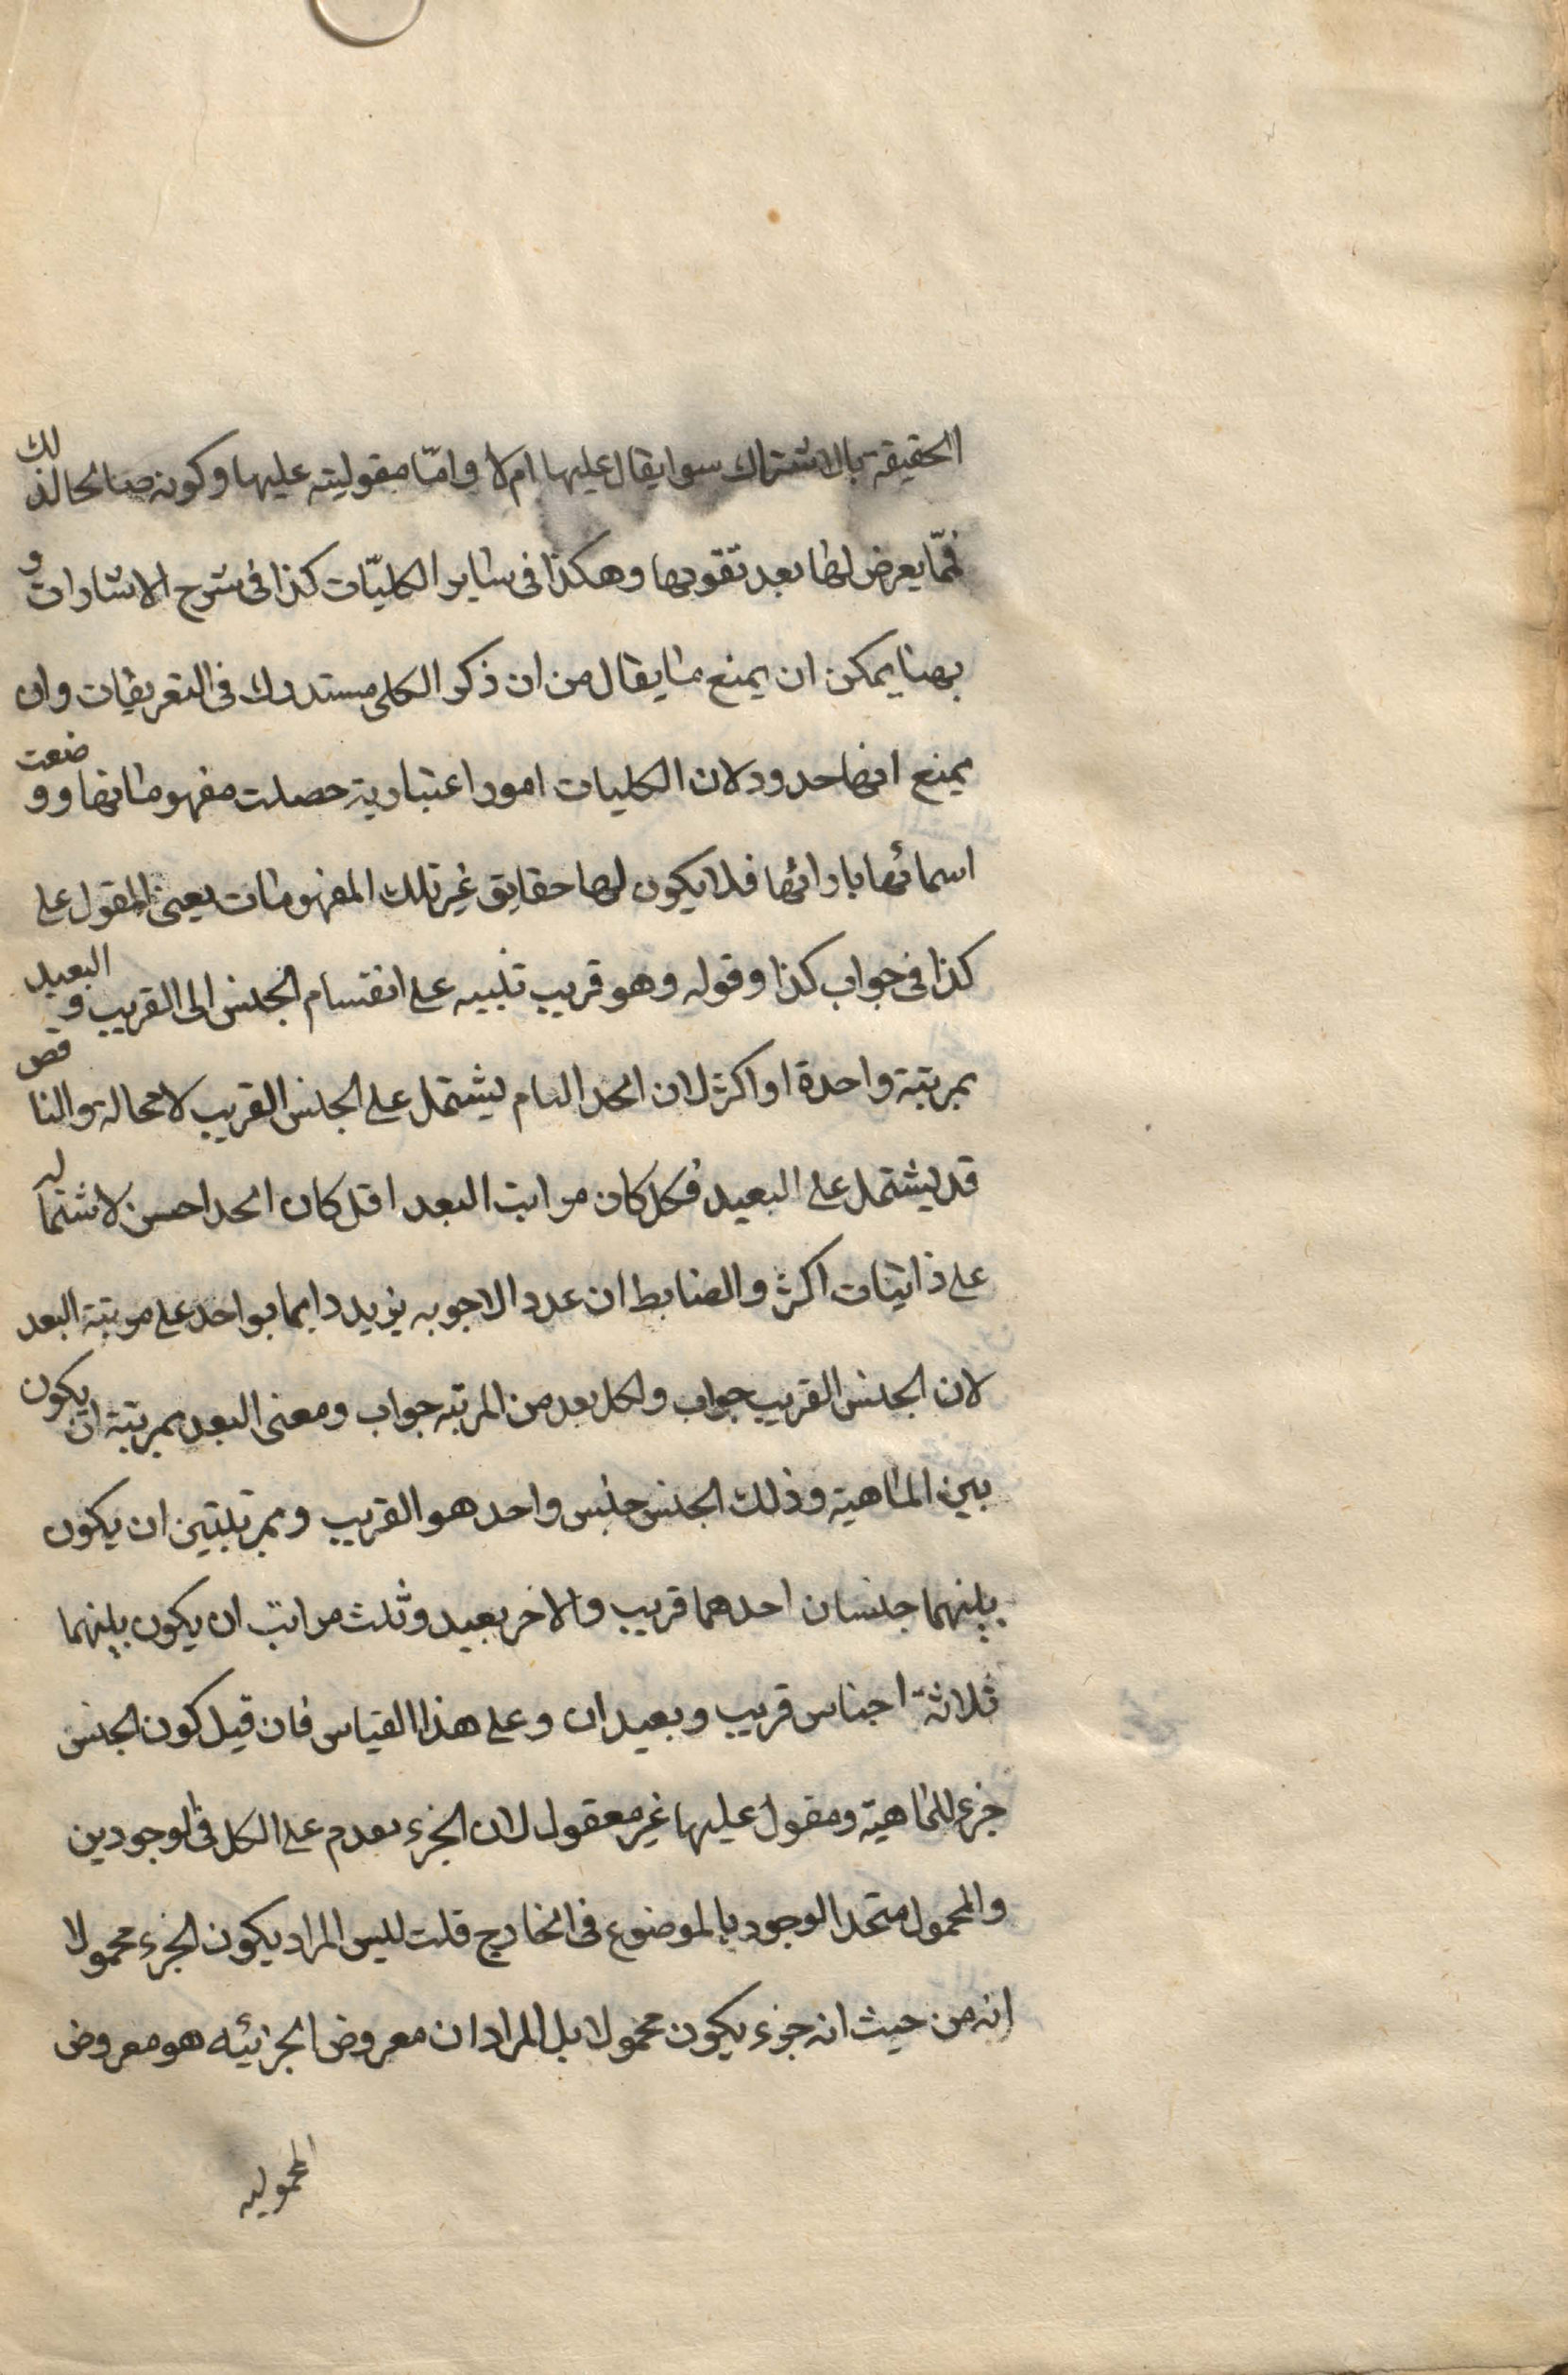 الحقيقة بالاشتراك سوا يقال عليها ام لا وامّا مقوليته عليها وكونه صالحا لذلك
فمّا يعرض لها بعد تقومها وهكذا فى ساير الكليّات كذا فى شرح الاشارات و
بهنا يمكن ان يمنع ما يقال من ان ذكر الكلى مستدرك فى التعريفات وان
يمنع انها حدود لان الكليات امور اعتبارية حصلت مفهوماتها ووضعت
اسمائها بازائها فلا يكون لها حقايق غير تلك المفهومات يعنى المقول على
كذا فى جواب كذا وقوله وهو قريب تنبيه على انقسام الجنس الى القريب و البعيد
بمرتبة واحدة او اكثر لان الحد التام يشتمل على الجنس القريب لا محالة والناقص
قد يشتمل على البعيد فكل كان مراتب البعد اقل كان الحد احسن لاشتماله
على ذاتيات اكثر والضابط ان عدد الاجوبه يزيد دايما بواحد على مرتبة البعد
لان الجنس القريب جواب ولكل بعد من المرتبه جواب ومعنى البعد بمرتبة ان يكون
بين الماهية وذلك الجنس جنس واحد هو القريب وبمرتبتين ان يكون
بينهما جنسان احدهما قريب والاخر بعيد وثلث مراتب ان يكون بينهما
ثلاثة اجناس قريب وبعيدان وعلى هذا القياس فان قيل كون الجنس
جزء للماهية ومقول عليها غير معقول لان الجزء يعدم على الكل فى الوجودين
والمحمول متحد الوجود بالموضوع فى الخارج قلت ليس المراد بكون الجزء محمولا
انه من حيث انه جزء يكون محمولا بل المراد ان معروض الجزئيه هو معروض
المحموليه